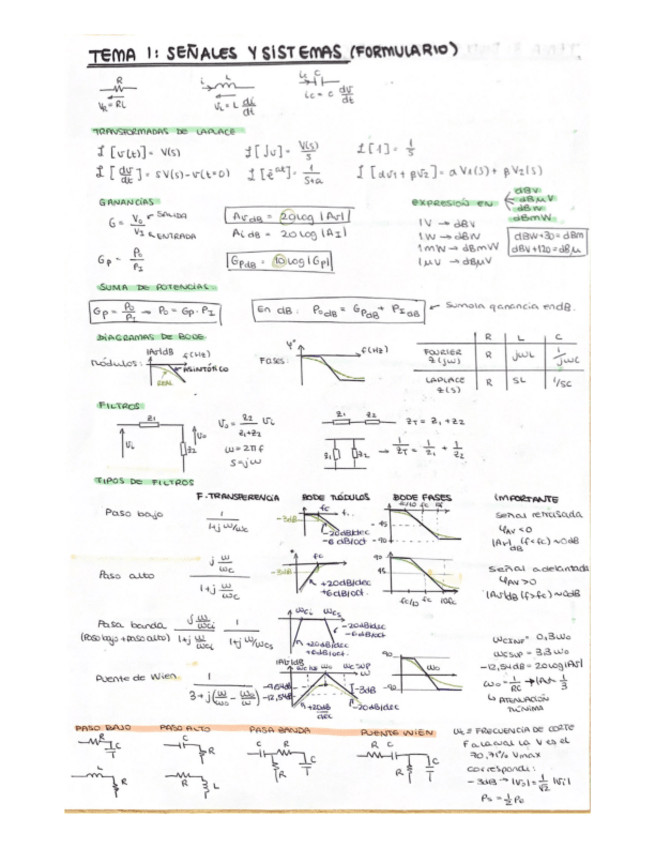 TEMA 1: SEÑALES Y SISTEMAS (FORMULARIO)
R
V_R = Ri
i L
V_L = L di/dt
i_c C
i_c = C dv/dt
TRANSFORMADAS DE LAPLACE
L[v(t)] = V(s)
L[∫v] = V(s)/s
L[1] = 1/s
L[dv/dt] = sV(s) - v(t=0)
L[e^-at] = 1/(s+a)
L[αv1 + βv2] = αV1(s) + βV2(s)
GANANCIAS
G = Vo/Vi
SALIDA
ENTRADA
Av dB = 20 log |Av|
Ai dB = 20 log |AI|
Gp = Po/PI
Gp dB = 10 log |Gp|
EXPRESIÓN EN
dBV
dBμV
dBW
dBmW
1V → dBV
1W → dBW
1mW → dBmW
1μV → dBμV
dBW+30 = dBm
dBV+120 = dBμ
SUMA DE POTENCIAS
Gp = Po/PI → Po = Gp·PI
En dB: Po dB = Gp dB + PI dB
Suma la ganancia en dB.
DIAGRAMAS DE BODE
Módulos:
|Av|dB
f(Hz)
ASINTÓTICO
REAL
Fases:
φ°
f(Hz)
R L C
FOURIER Z(jω) R jωL 1/jωC
LAPLACE Z(s) R SL 1/SC
FILTROS
Z1
Vi
Z2
Vo
Vo = Z2/(Z1+Z2) Vi
ω = 2πf
S = jω
Z1 Z2
ZT = Z1 + Z2
Z1 Z2
→ 1/ZT = 1/Z1 + 1/Z2
TIPOS DE FILTROS
F. TRANSFERENCIA BODE MÓDULOS BODE FASES IMPORTANTE
Paso bajo
1/(1+jω/ωc)
fc f
-3dB
-20dB/dec
-6dB/oct
fc/10 fc
-45
-90
Señal retrasada
φAV<0
|Av|dB (f<fc) ≈ 0dB
Paso alto
(j ω/ωc)/(1+j ω/ωc)
fc
-3dB
+20dB/dec
+6dB/oct
90
45
fc/10 fc 10fc
Señal adelantada
φAV>0
|Av|dB (f>fc) ≈ 0dB
Pasa banda
(Paso bajo + paso alto)
(j ω/ωci)/(1+j ω/ωci) 1/(1+j ω/ωcs)
ωci ωcs
-20dB/dec
-6dB/oct
+20dB/dec
+6dB/oct
Puente de Wien
1/(3+j(ω/ωo - ωo/ω))
|Av|dB
ωc INF ωo ωc SUP
ω
-9,54dB
-12,54dB
-3dB
+20dB/dec
-20dB/dec
90
ωo
-90
ωcINF = 0,3ωo
ωcSUP = 3,3ωo
-12,54dB = 20log|Av|
ωo = 1/RC → |Av| = 1/3
ATENUACIÓN
MÍNIMA
PASO BAJO PASO ALTO PASA BANDA PUENTE WIEN
R C
C R
C R R C
R C R C
L R
R L
FRECUENCIA DE CORTE
A la cual la V es el
70,71% Vmax
corresponde:
-3dB → |Vo| = 1/√2 |Vi|
Ps = 1/2 Po